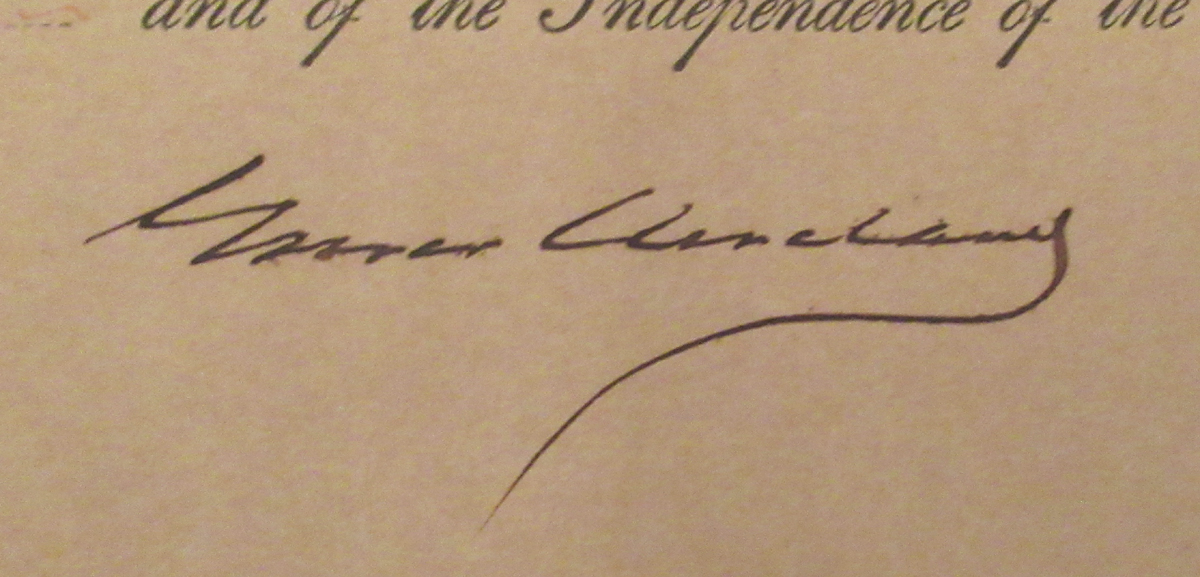 and of the Independence of the
Grover Cleveland